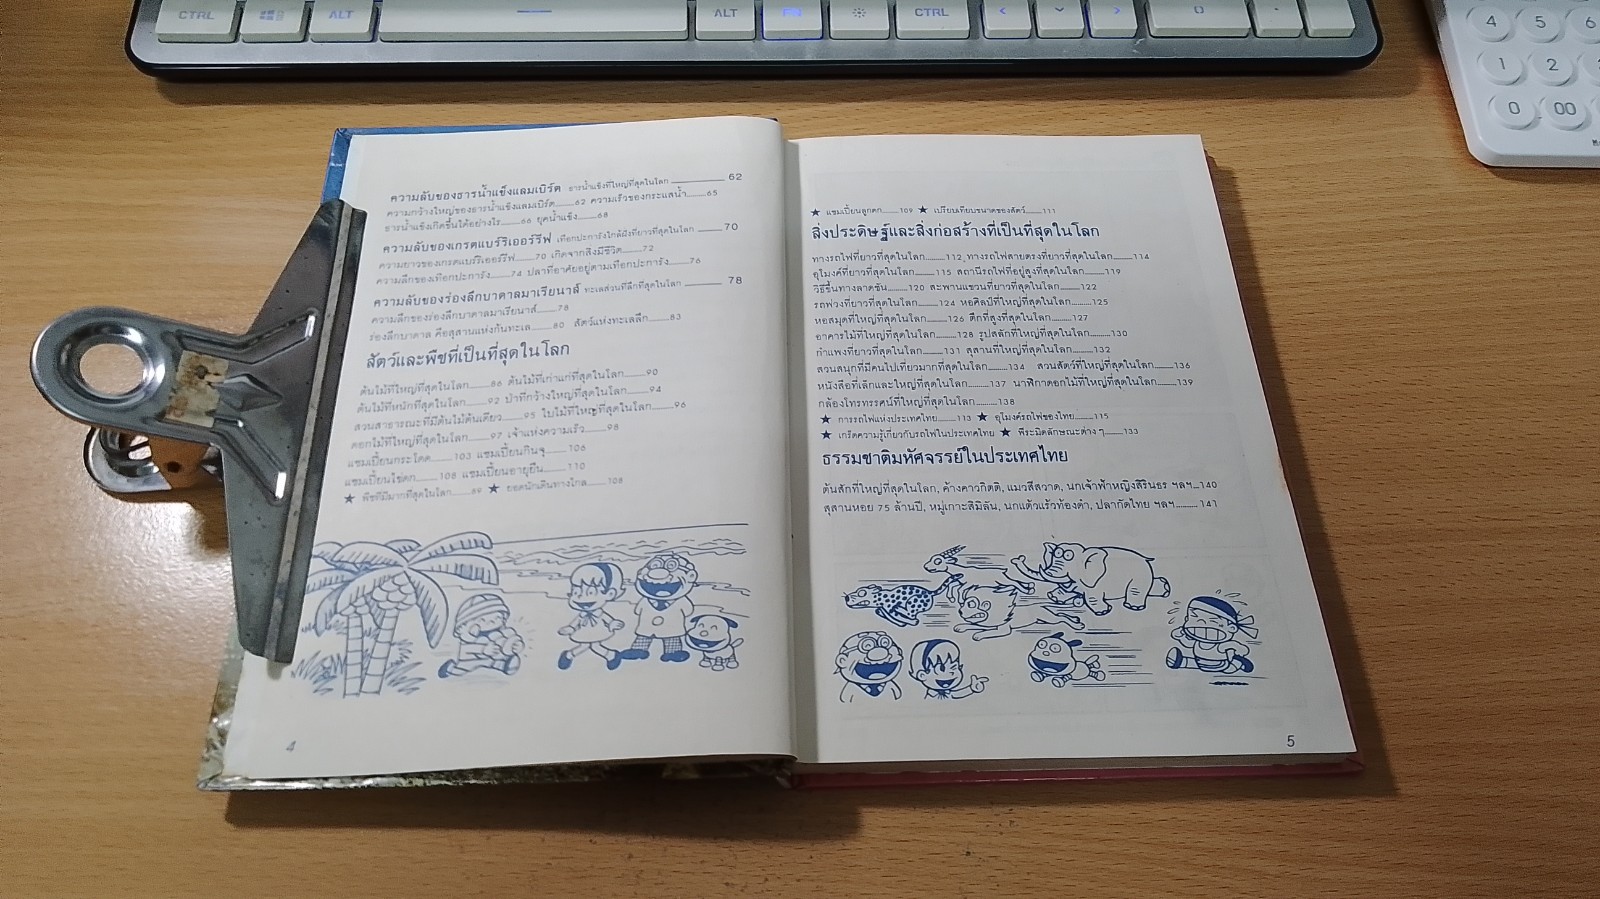 CTRL ALT ALT EN CTRL < >
4 5 6
1 2
0 00
ความลับของธารน้ำแข็งแลมเบิร์ต ธารน้ำแข็งที่ใหญ่ที่สุดในโลก 62
ความกว้างใหญ่ของธารน้ำแข็งแลมเบิร์ต........62 ความเร็วของกระแสน้ำ........65
ธารน้ำแข็งเกิดขึ้นได้อย่างไร........66 ยุคน้ำแข็ง........68
ความลับของเกรตแบร์ริเออร์รีฟ เทือกปะการังใกล้ฝั่งที่ยาวที่สุดในโลก 70
ความยาวของเกรตแบร์ริเออร์รีฟ........70 เกิดจากสิ่งมีชีวิต........72
ความลึกของเทือกปะการัง........74 ปลาที่อาศัยอยู่ตามเทือกปะการัง........76
ความลับของร่องลึกบาดาลมาเรียนาส์ ทะเลส่วนที่ลึกที่สุดในโลก 78
ความลึกของร่องลึกบาดาลมาเรียนาส์........78
ร่องลึกบาดาล คือสุสานแห่งก้นทะเล........80 สัตว์แห่งทะเลลึก........83
สัตว์และพืชที่เป็นที่สุดในโลก
ต้นไม้ที่ใหญ่ที่สุดในโลก........86 ต้นไม้ที่เก่าแก่ที่สุดในโลก........90
ต้นไม้ที่หนักที่สุดในโลก........92 ป่าที่กว้างใหญ่ที่สุดในโลก........94
สวนสาธารณะที่มีต้นไม้ต้นเดียว........95 ใบไม้ที่ใหญ่ที่สุดในโลก........96
ดอกไม้ที่ใหญ่ที่สุดในโลก........97 เจ้าแห่งความเร็ว........98
แชมเปี้ยนกระโดด........103 แชมเปี้ยนกินจุ........106
แชมเปี้ยนไข่ดก........108 แชมเปี้ยนอายุยืน........110
★ พืชที่มีมากที่สุดในโลก........89 ★ ยอดนักเดินทางไกล........108
4
★ แชมเปี้ยนลูกดก........109 ★ เปรียบเทียบขนาดของสัตว์........111
สิ่งประดิษฐ์และสิ่งก่อสร้างที่เป็นที่สุดในโลก
ทางรถไฟที่ยาวที่สุดในโลก........112 ทางรถไฟสายตรงที่ยาวที่สุดในโลก........114
อุโมงค์ที่ยาวที่สุดในโลก........115 สถานีรถไฟที่อยู่สูงที่สุดในโลก........119
วิธีขึ้นทางลาดชัน........120 สะพานแขวนที่ยาวที่สุดในโลก........122
รถพ่วงที่ยาวที่สุดในโลก........124 หอศิลป์ที่ใหญ่ที่สุดในโลก........125
หอสมุดที่ใหญ่ที่สุดในโลก........126 ตึกที่สูงที่สุดในโลก........127
อาคารไม้ที่ใหญ่ที่สุดในโลก........128 รูปสลักที่ใหญ่ที่สุดในโลก........130
กำแพงที่ยาวที่สุดในโลก........131 สุสานที่ใหญ่ที่สุดในโลก........132
สวนสนุกที่มีคนไปเที่ยวมากที่สุดในโลก........134 สวนสัตว์ที่ใหญ่ที่สุดในโลก........136
หนังสือที่เล็กและใหญ่ที่สุดในโลก........137 นาฬิกาดอกไม้ที่ใหญ่ที่สุดในโลก........139
กล้องโทรทรรศน์ที่ใหญ่ที่สุดในโลก........138
★ การรถไฟแห่งประเทศไทย........113 ★ อุโมงค์รถไฟของไทย........115
★ เกร็ดความรู้เกี่ยวกับรถไฟในประเทศไทย ★ พีระมิดลักษณะต่าง ๆ........133
ธรรมชาติมหัศจรรย์ในประเทศไทย
ต้นสักที่ใหญ่ที่สุดในโลก, ค้างคาวกิตติ, แมวสีสวาด, นกเจ้าฟ้าหญิงสิรินธร ฯลฯ...140
สุสานหอย 75 ล้านปี, หมู่เกาะสิมิลัน, นกแต้วแร้วท้องดำ, ปลากัดไทย ฯลฯ........141
5